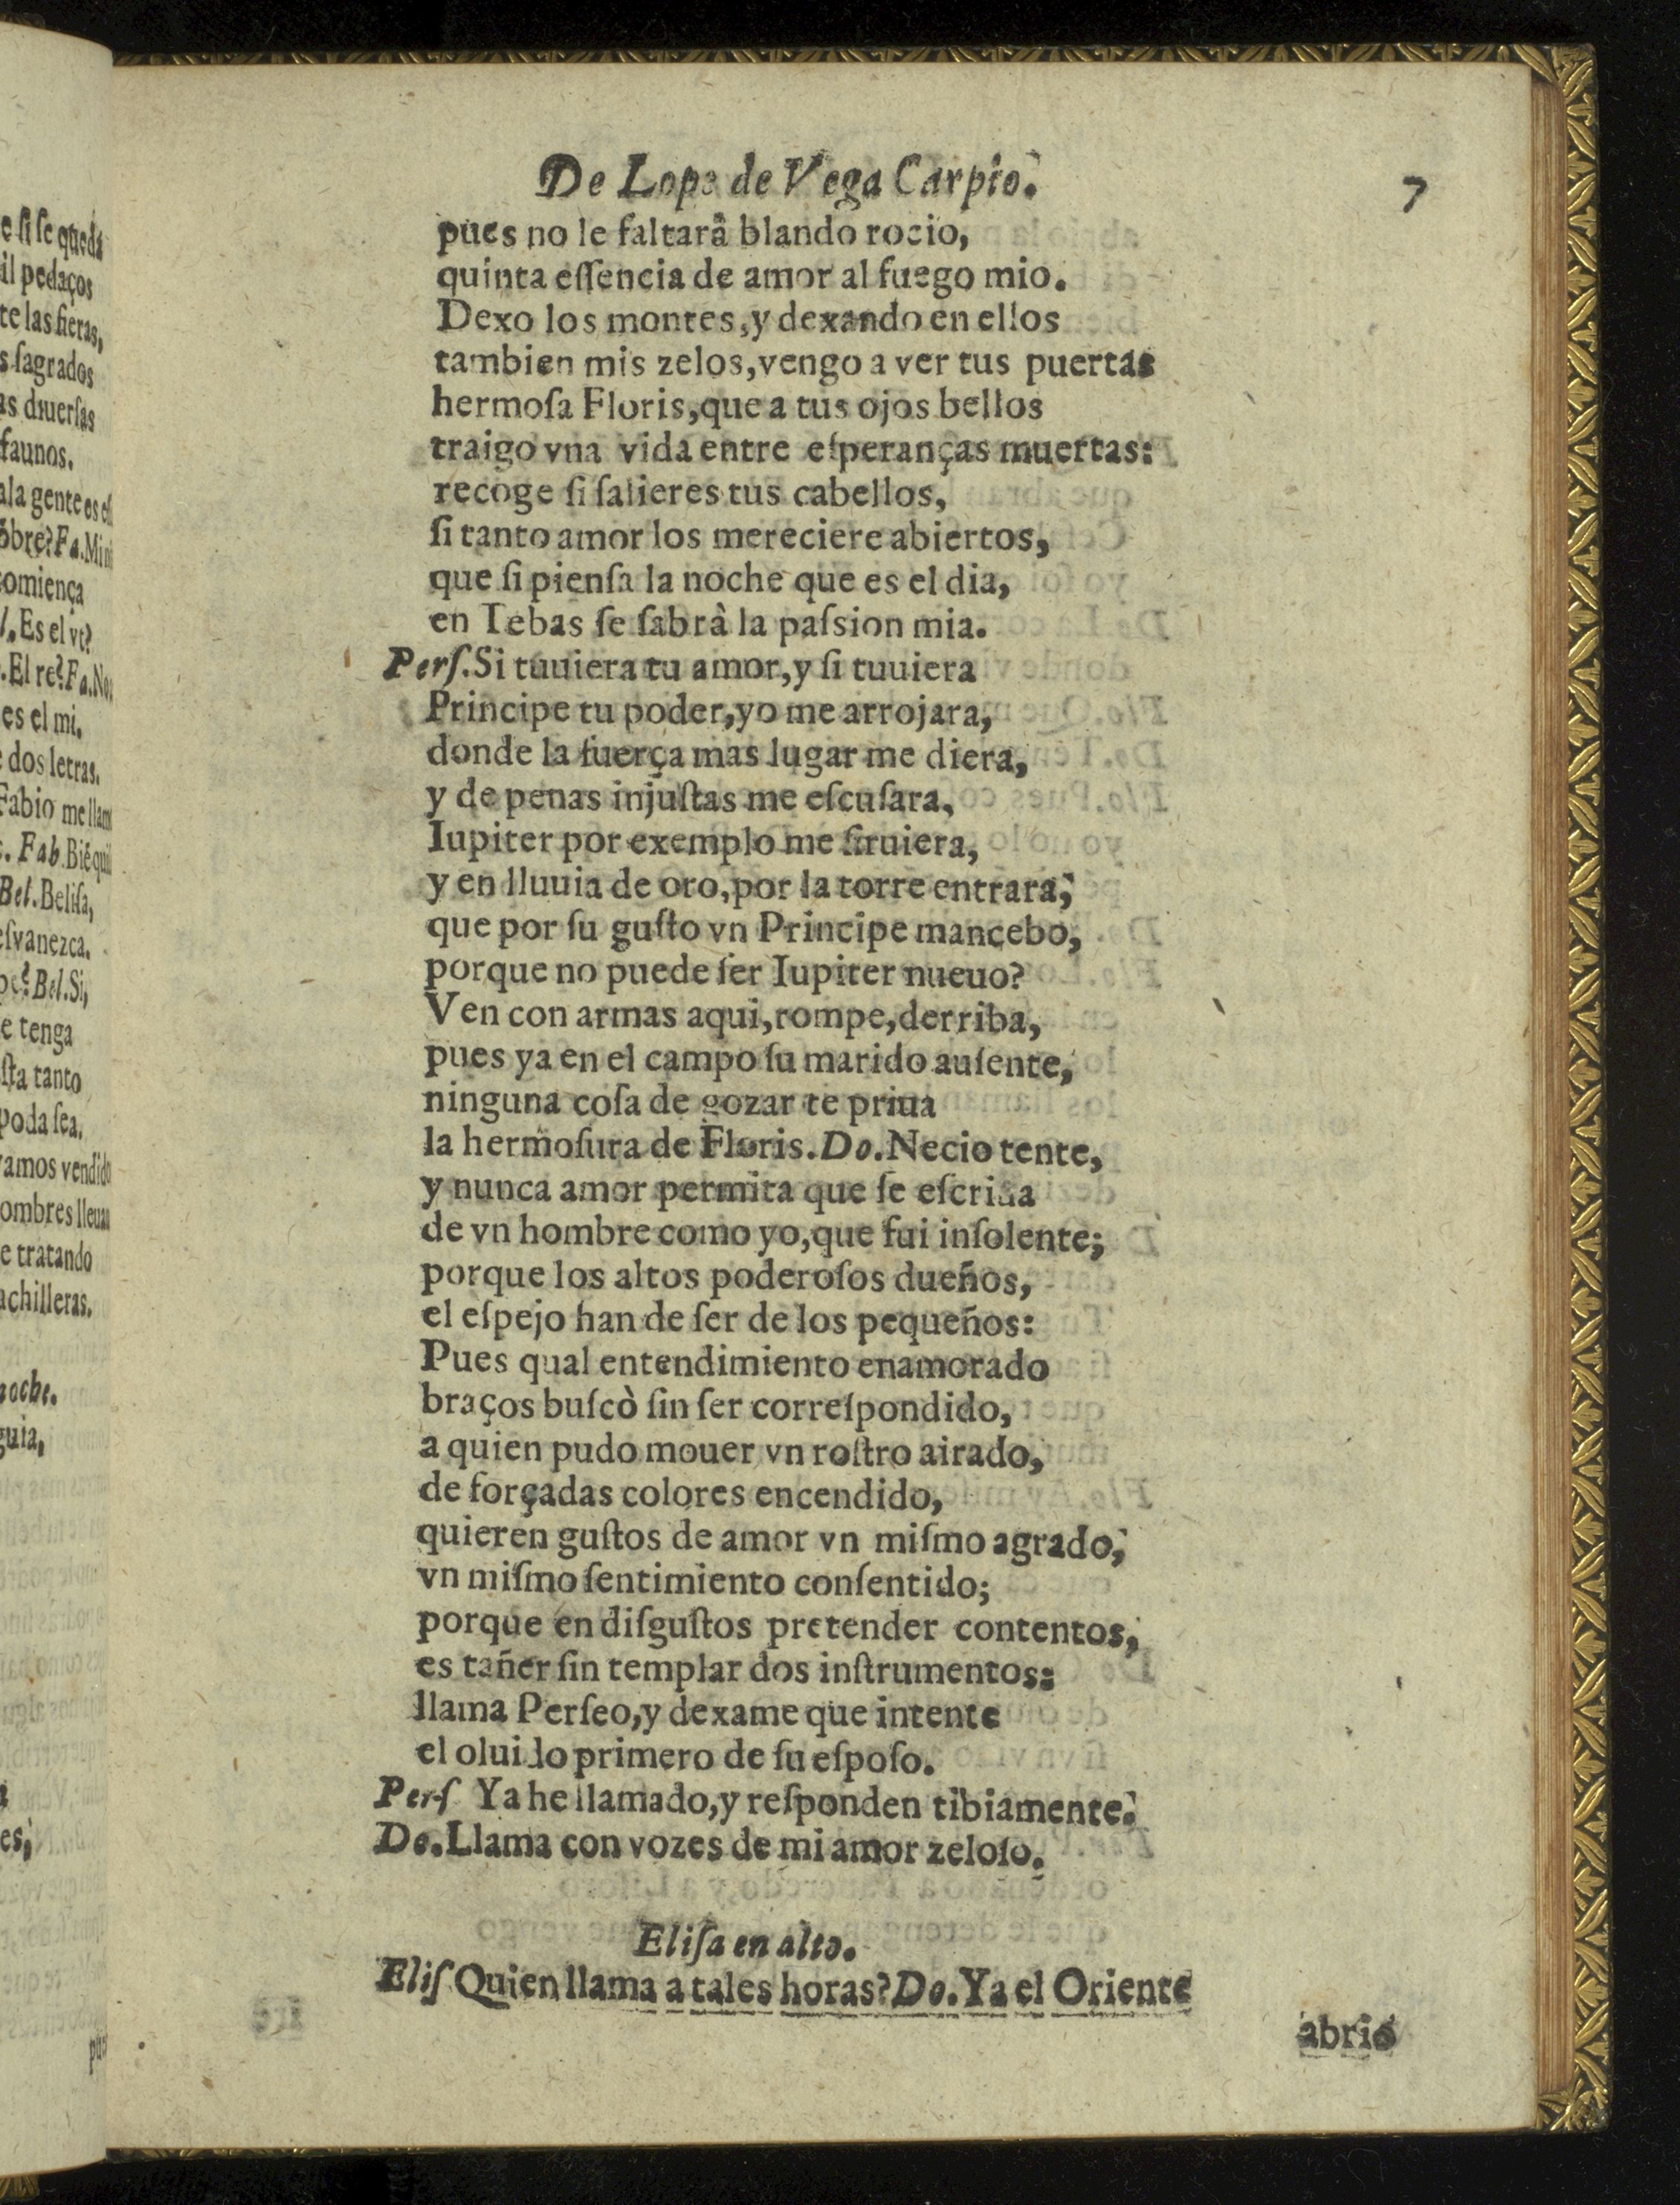 De Lope de Vega Carpio.
7
pues no le faltarâ blando rocio,
quinta eſſencia de amor al fuego mio.
Dexo los montes, y dexando en ellos
tambien mis zelos, vengo a ver tus puertas
hermoſa Floris, que a tus ojos bellos
traigo vna vida entre eſperanças muertas:
recoge ſi ſalieres tus cabellos,
ſi tanto amor los mereciere abiertos,
que ſi pienſa la noche que es el dia,
en Tebas ſe ſabrà la paſsion mia.
Perſ. Si tuuiera tu amor, y ſi tuuiera
Principe tu poder, yo me arrojara,
donde la fuerça mas lugar me diera,
y de penas injuſtas me eſcuſara,
Iupiter por exemplo me ſiruiera,
y en lluuia de oro, por la torre entrara,
que por ſu guſto vn Principe mancebo,
porque no puede ſer Iupiter nueuo?
Ven con armas aqui, rompe, derriba,
pues ya en el campo ſu marido auſente,
ninguna coſa de gozar te priua
la hermoſura de Floris. Do. Necio tente,
y nunca amor permita que ſe eſcriua
de vn hombre como yo, que fui inſolente;
porque los altos poderoſos dueños,
el eſpejo han de ſer de los pequeños:
Pues qual entendimiento enamorado
braços buſcò ſin ſer correſpondido,
a quien pudo mouer vn roſtro airado,
de forçadas colores encendido,
quieren guſtos de amor vn miſmo agrado,
vn miſmo ſentimiento conſentido;
porque en diſguſtos pretender contentos,
es tañer ſin templar dos inſtrumentos:
llama Perſeo, y dexame que intente
el oluido primero de ſu eſpoſo.
Perſ Ya he llamado, y reſponden tibiamente.
Do. Llama con vozes de mi amor zeloſo.
Eliſa en alto.
Eliſ Quien llama a tales horas? Do. Ya el Oriente
abrio
e ſi ſe queda
il pedaços
te las fieras,
s ſagrados
as diuerſas
faunos.
ala gente es
ōbre? Fa. Mi
comiença
l. Es el vt?
. El re? Fa. No
es el mi.
dos letras.
Fabio me llam
. Fab. Biē qui
Bel. Beliſa,
eſvanezca.
pe? Bel. Si,
e tenga
ſta tanto
poda ſea.
amos vendido
ombres lleuan
e tratando
achilleras.
noche.
guia,
es,